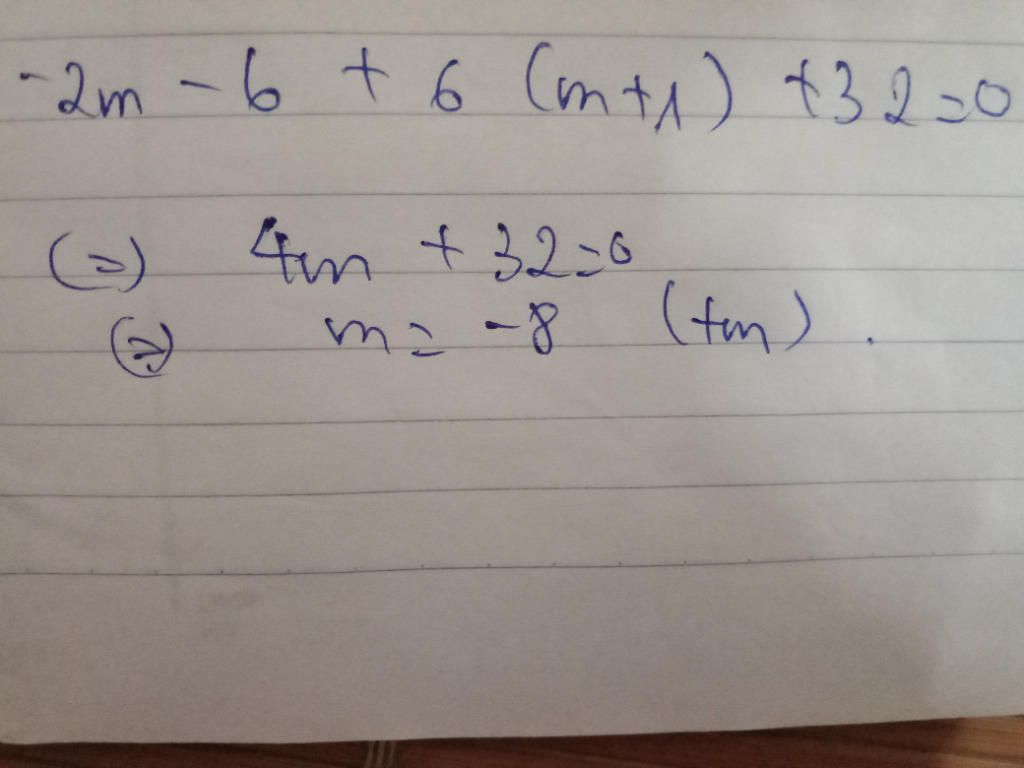 -2m - 6 + 6 (m+1) +32=0
(=) 4m + 32=0
(=) m = -8 (tm).